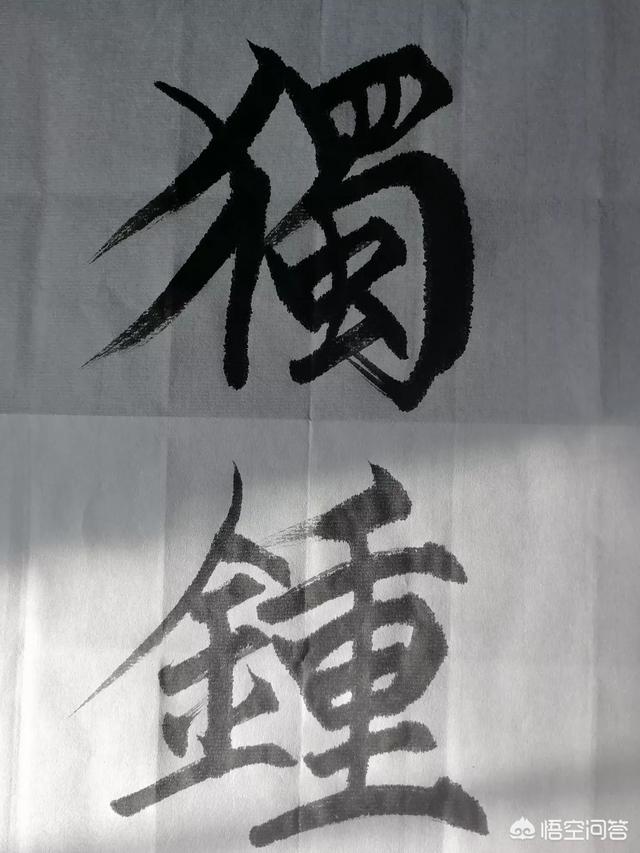 獨
鍾
悟空问答